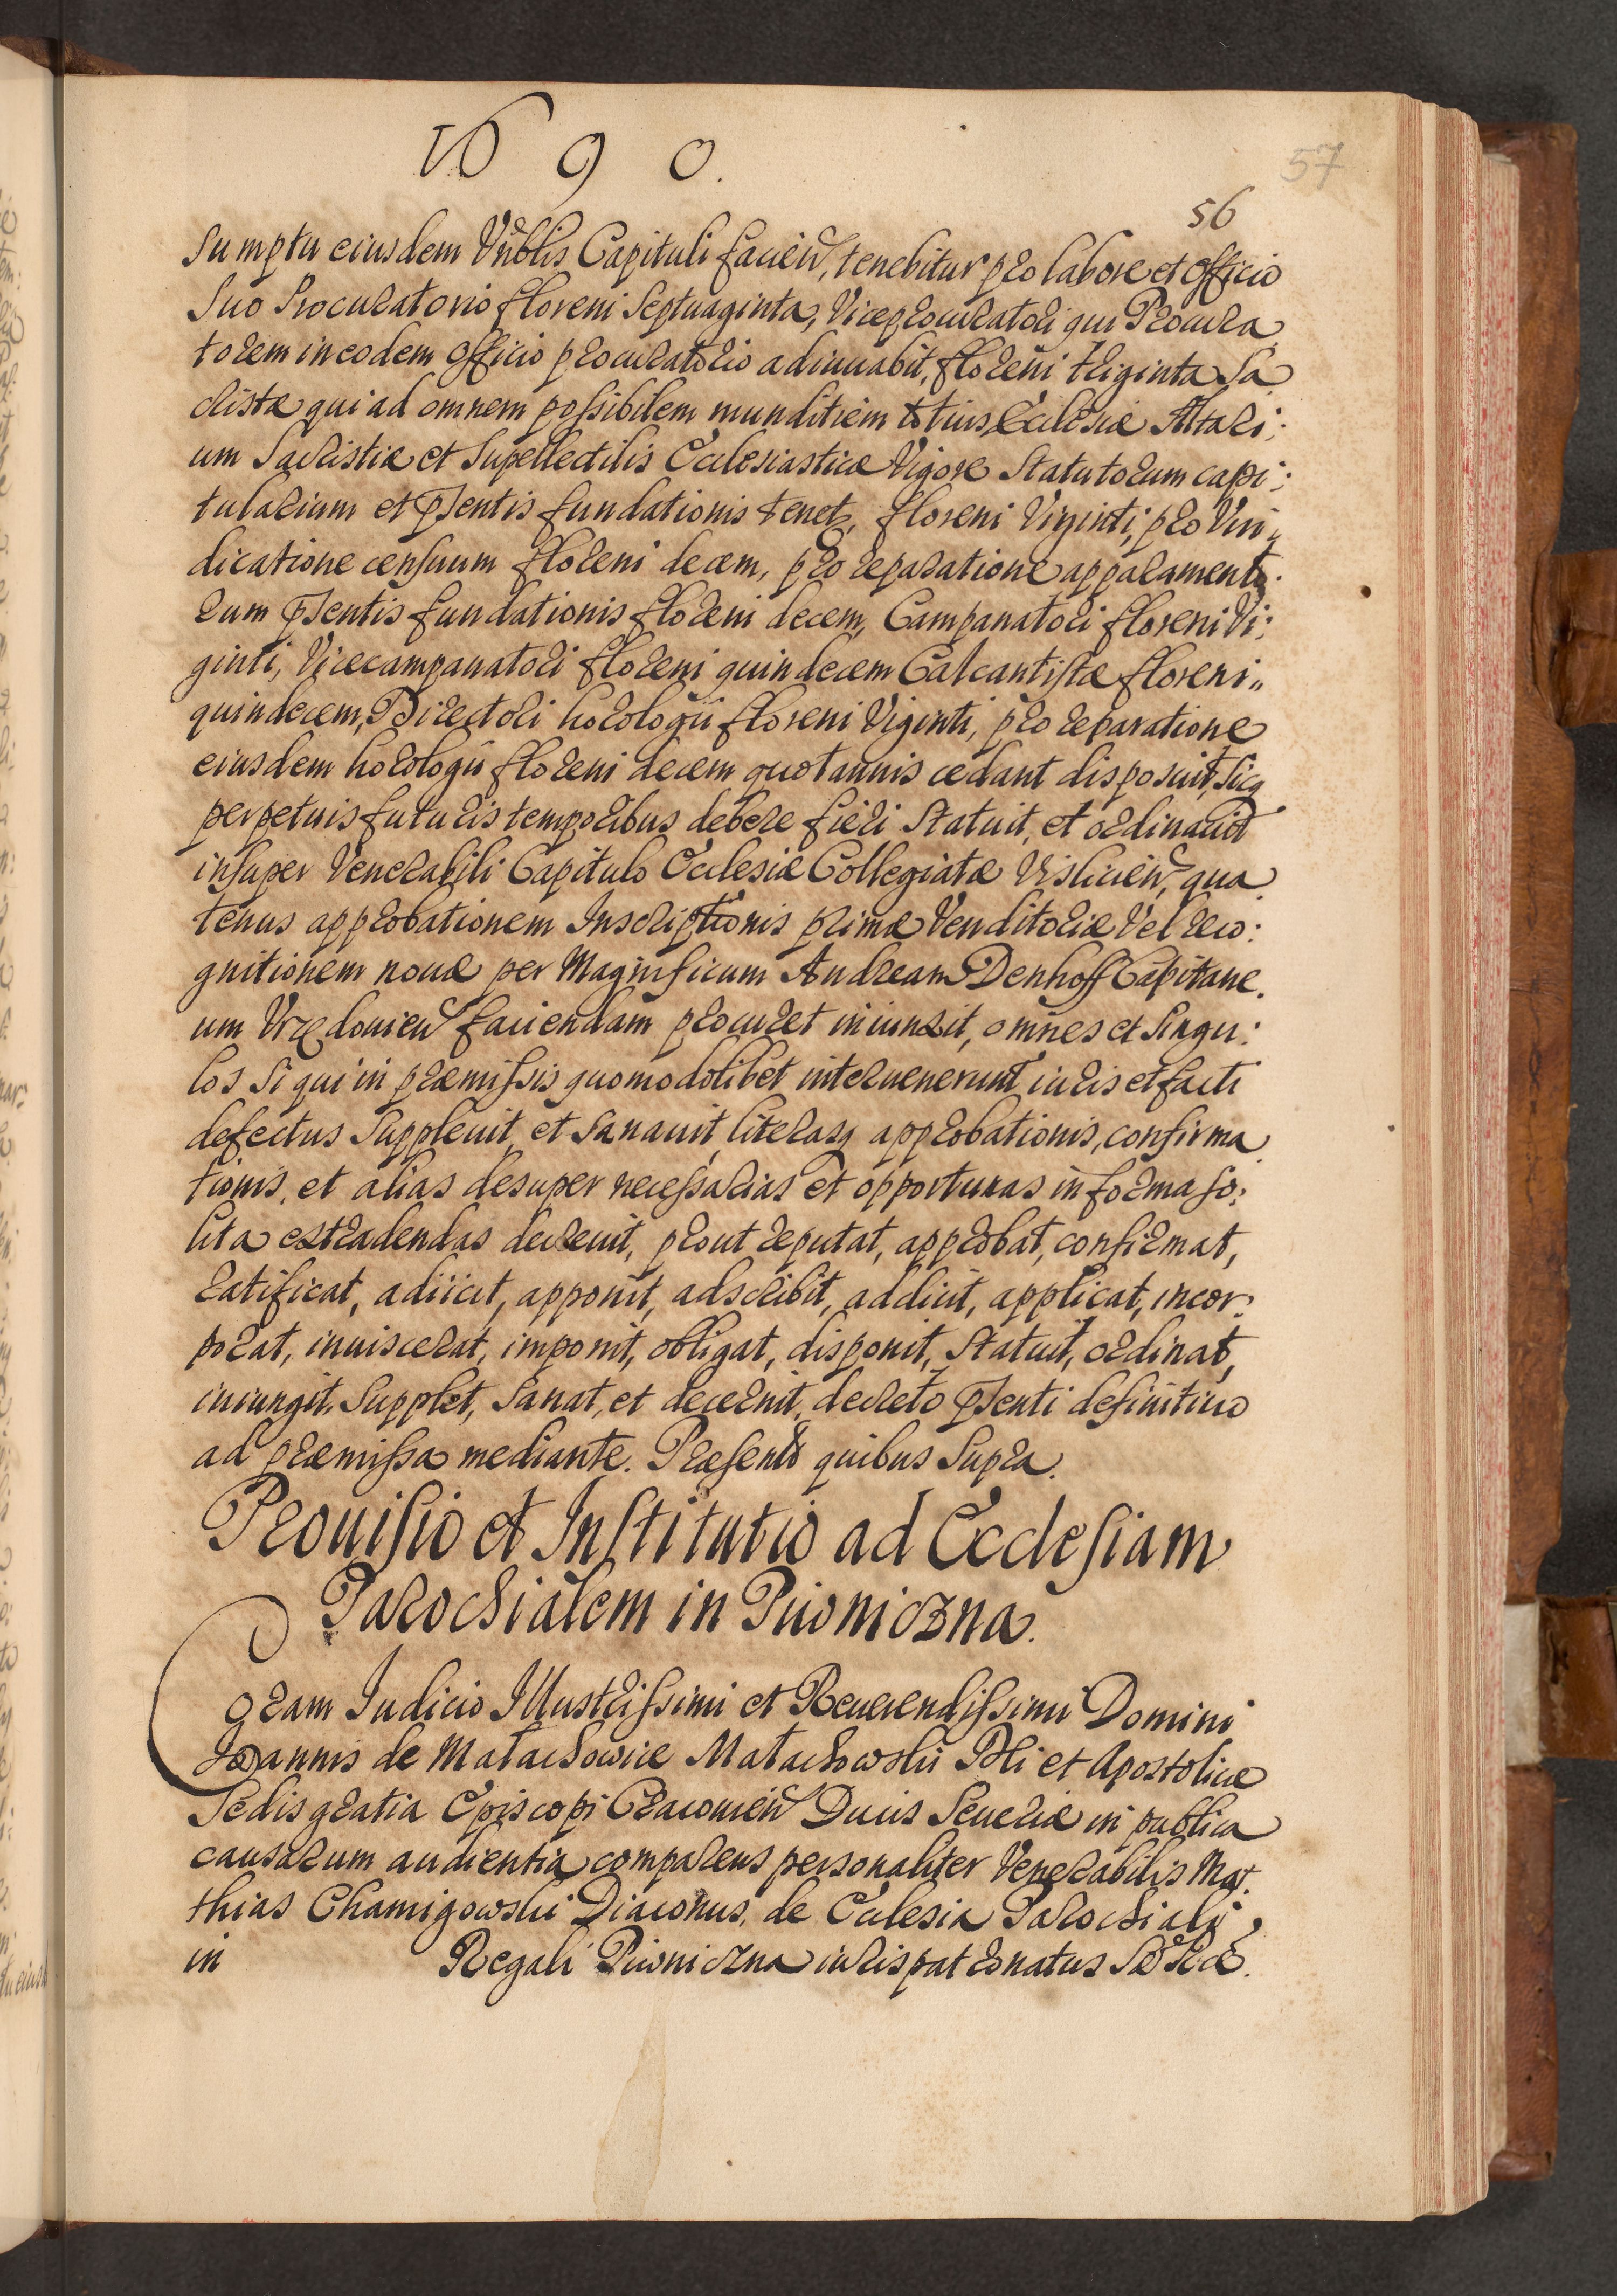 1690.
57
56
Sumptu eiusdem Vnblis Capituli facień, tenebitur pro labore et officio
Suo Procuratorio floreni Septuaginta, Viceprocuratori qui Procura
torem in eodem officio procuratorio adiuuabit, floreni triginta Sa
cristæ qui ad omnem possibilem munditiem totius Ecclesiæ Altari:
um Sacristiæ et Supellectilis Ecclesiasticæ Vigore Statutorum capi:
tularium et pſentis fundationis tenet, floreni Viginti, pro Vin:
dicatione censuum floreni decem, pro reparatione apparamento:
rum pſentis fundationis floreni decem, Campanatori floreni Vi:
ginti, Vicecampanatori floreni quindecem Calcantistæ floreni"
quindecem, Directori horologii floreni Viginti, pro reparatione
eiusdem horologii floreni decem quotannis cedant disposuit, Sicq
perpetuis futuris temporibus debere fieri Statuit, et ordinauit
insuper Venerabili Capitulo Ecclesiæ Collegiatæ Vislicień, qua
tenus approbationem Inscriptionis primæ Venditoriæ Vel reco:
gnitionem nouæ per Magnificum Andream Denhoff Capitane.
um Vrzędouień faciendam procuret iniunxit, omnes et singu:
los Si qui in præmissis quomodolibet interuenerunt iuris et facti
defectus Suppleuit et Sanauit, literasq approbationis, confirma
tionis, et alias desuper necessarias et opportunas in forma so:
lita extradendas decreuit, prout reputat, approbat, confirmat,
ratificat, adiicit, apponit, adscribit, addicit, applicat, incor:
porat, inuiscerat, imponit, obligat, disponit, Statuit, ordinat,
iniungit, Supplet, Sanat, et decernit, decreto pſenti definitiuo
ad præmissa mediante. Præsentb quibus Supra.
Prouisio et Institutio ad Ecclesiam
Parochialem in Piwniczna.
Coram Iudicio Illustrissimi et Reuerendissimi Domini
Joannis de Małachowice Małachowski Dei et Apostolicæ
Sedis gratia Episcopi Cracouień Ducis Seueriæ in publica
causarum audientia comparens personaliter Venerabilis Mat.
thias Chamigowski Diaconus, de Ecclesia Parochiali,
in Regali Piwniczna iurispatronatus Sæ Ræ.